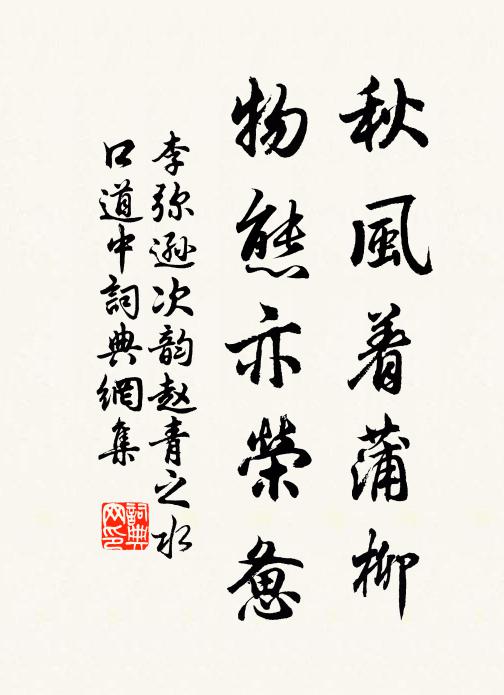 秋風着蒲柳
物態亦榮惫
李弥遜次韵赵青之水
口道中詞典網集
詞典
网印